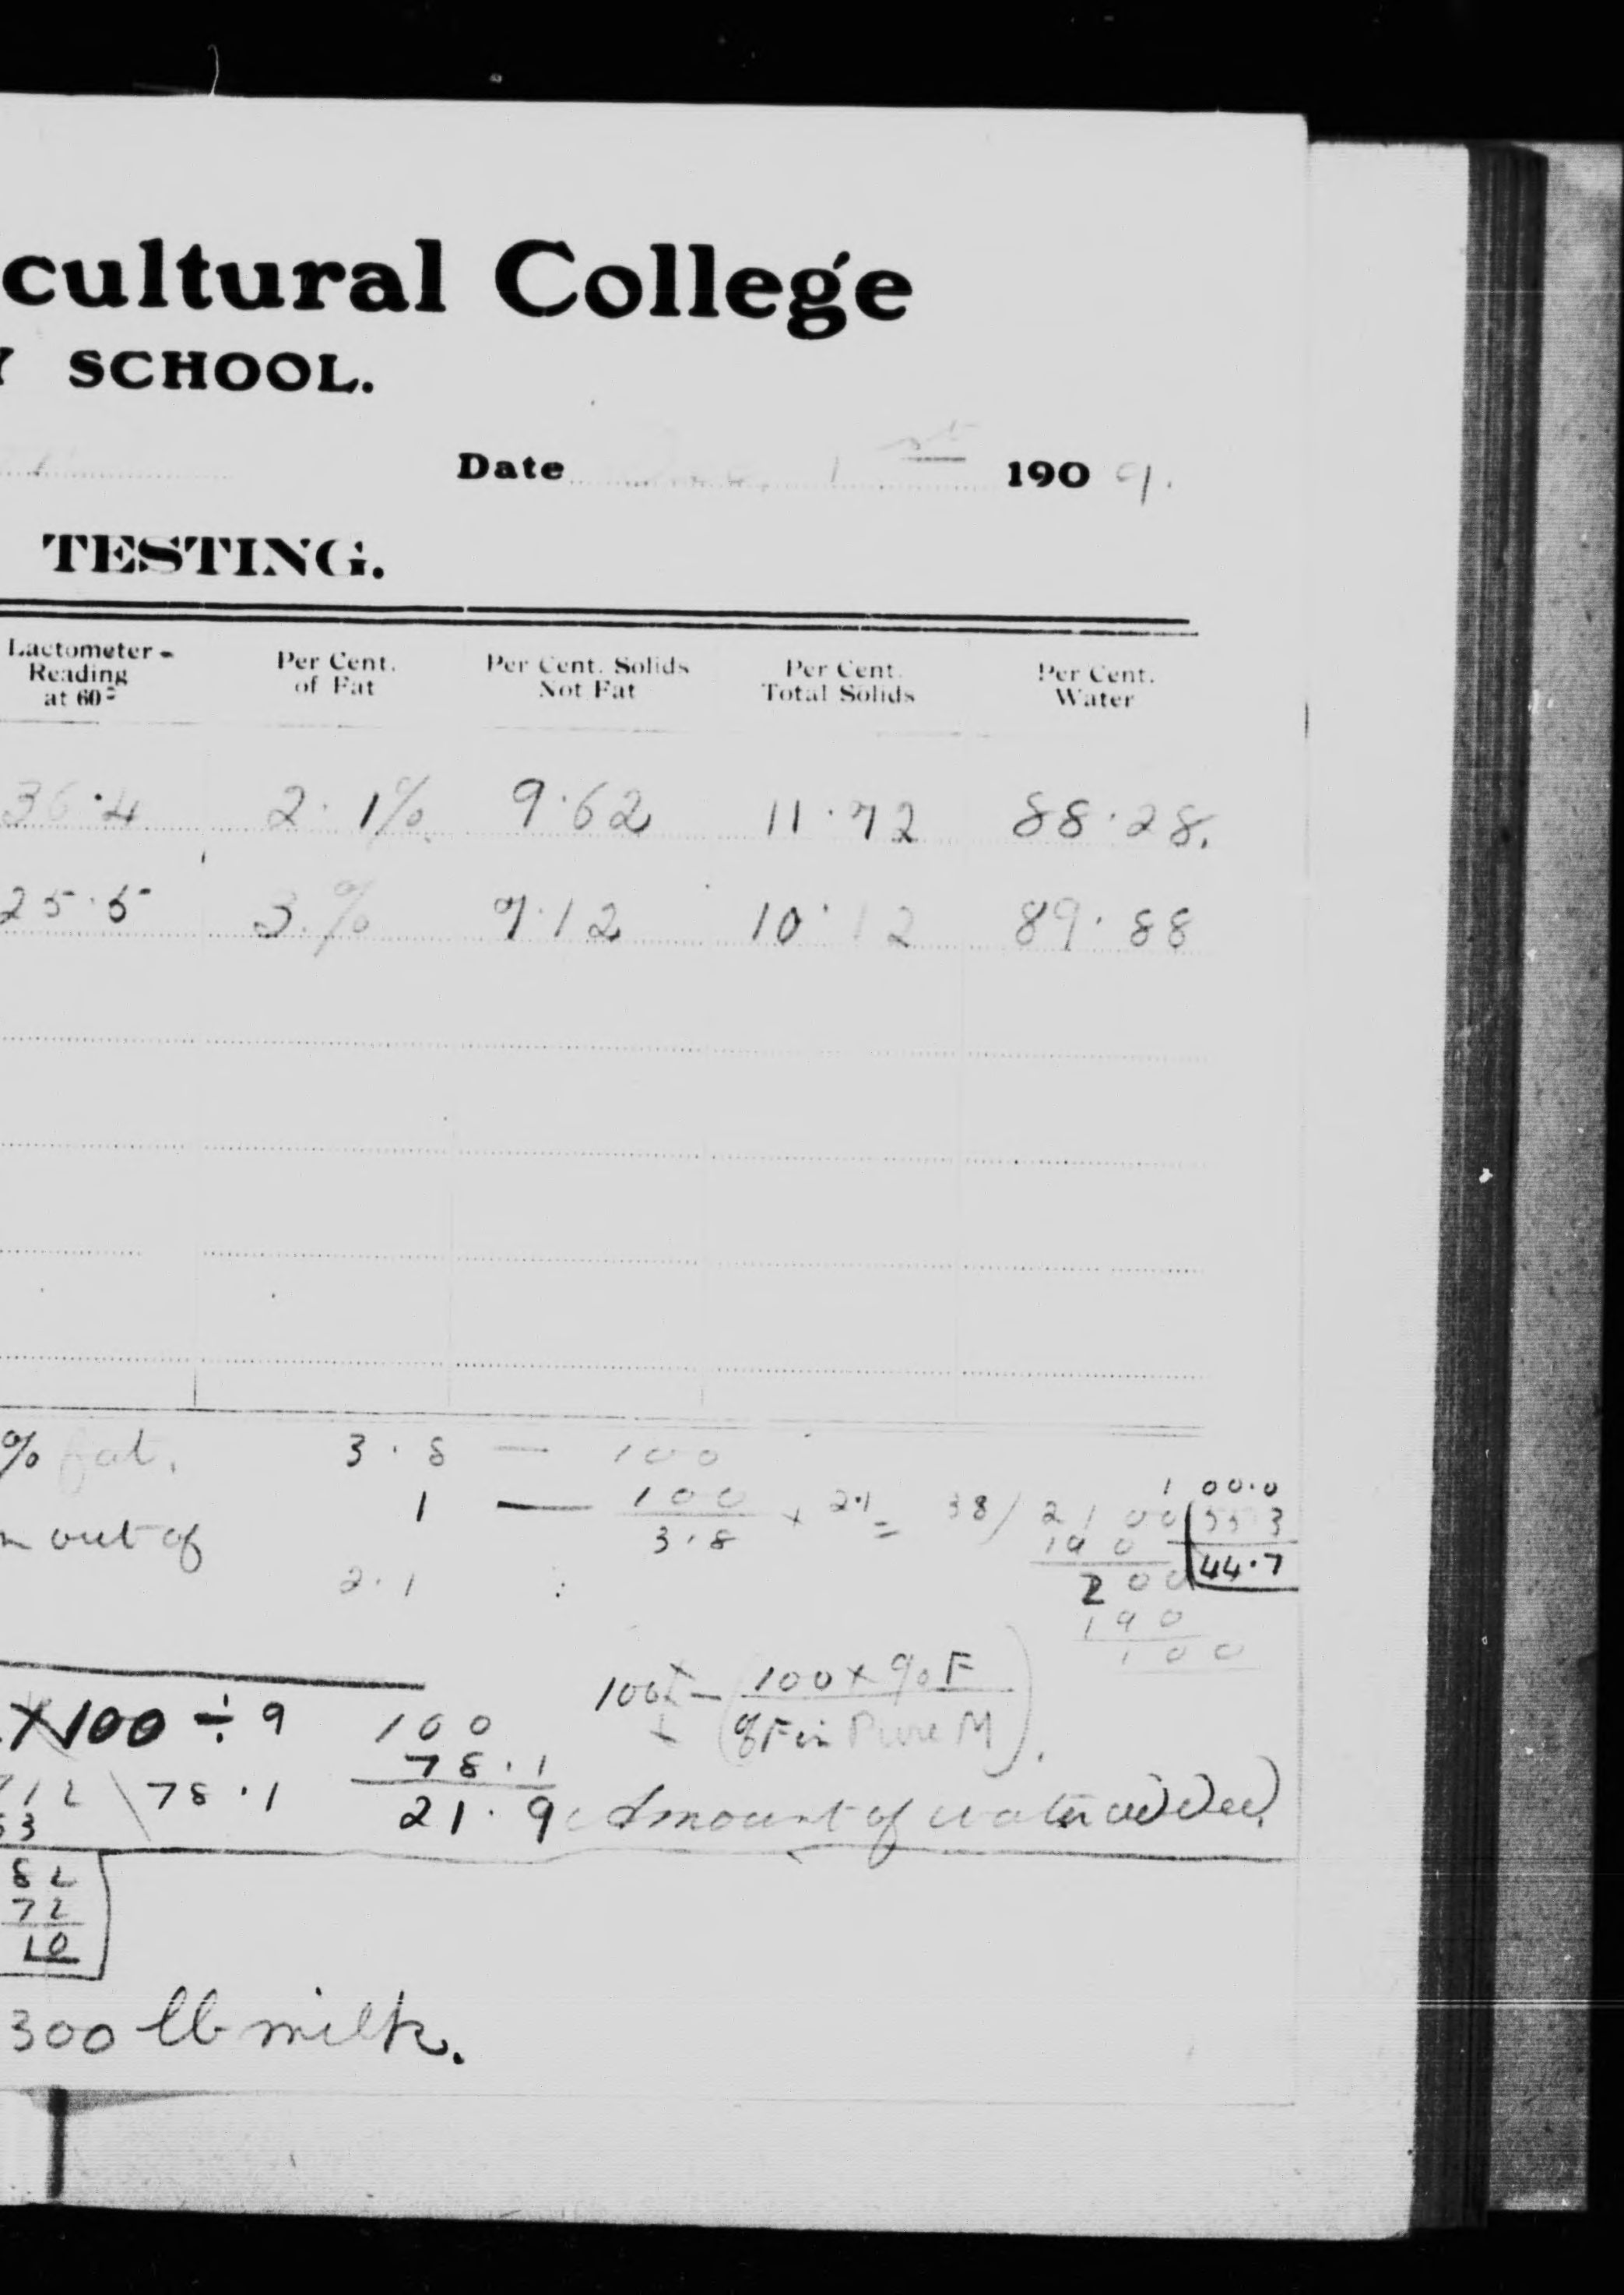 cultural College
Y SCHOOL.
Date 1st 1909.
TESTING.
Lactometer Reading at 60° Per Cent. of Fat Per Cent. Solids Not Fat Per Cent. Total Solids Per Cent. Water
36.4 2.1% 9.62 11.72 88.28.
25.5 3.% 7.12 10.12 89.88
% fat. 3.8 — 100
1 — 100/3.8 × 2.1 = 38/2100 100.0
out of 190 44.7
2.1 : 200
190
100
100 - (100 × % F / % F in Pure M).
×100 ÷ 9 100
78.1
712 \ 78.1 21.9 Amount of water added.
63
82
72
10
300 lb milk.